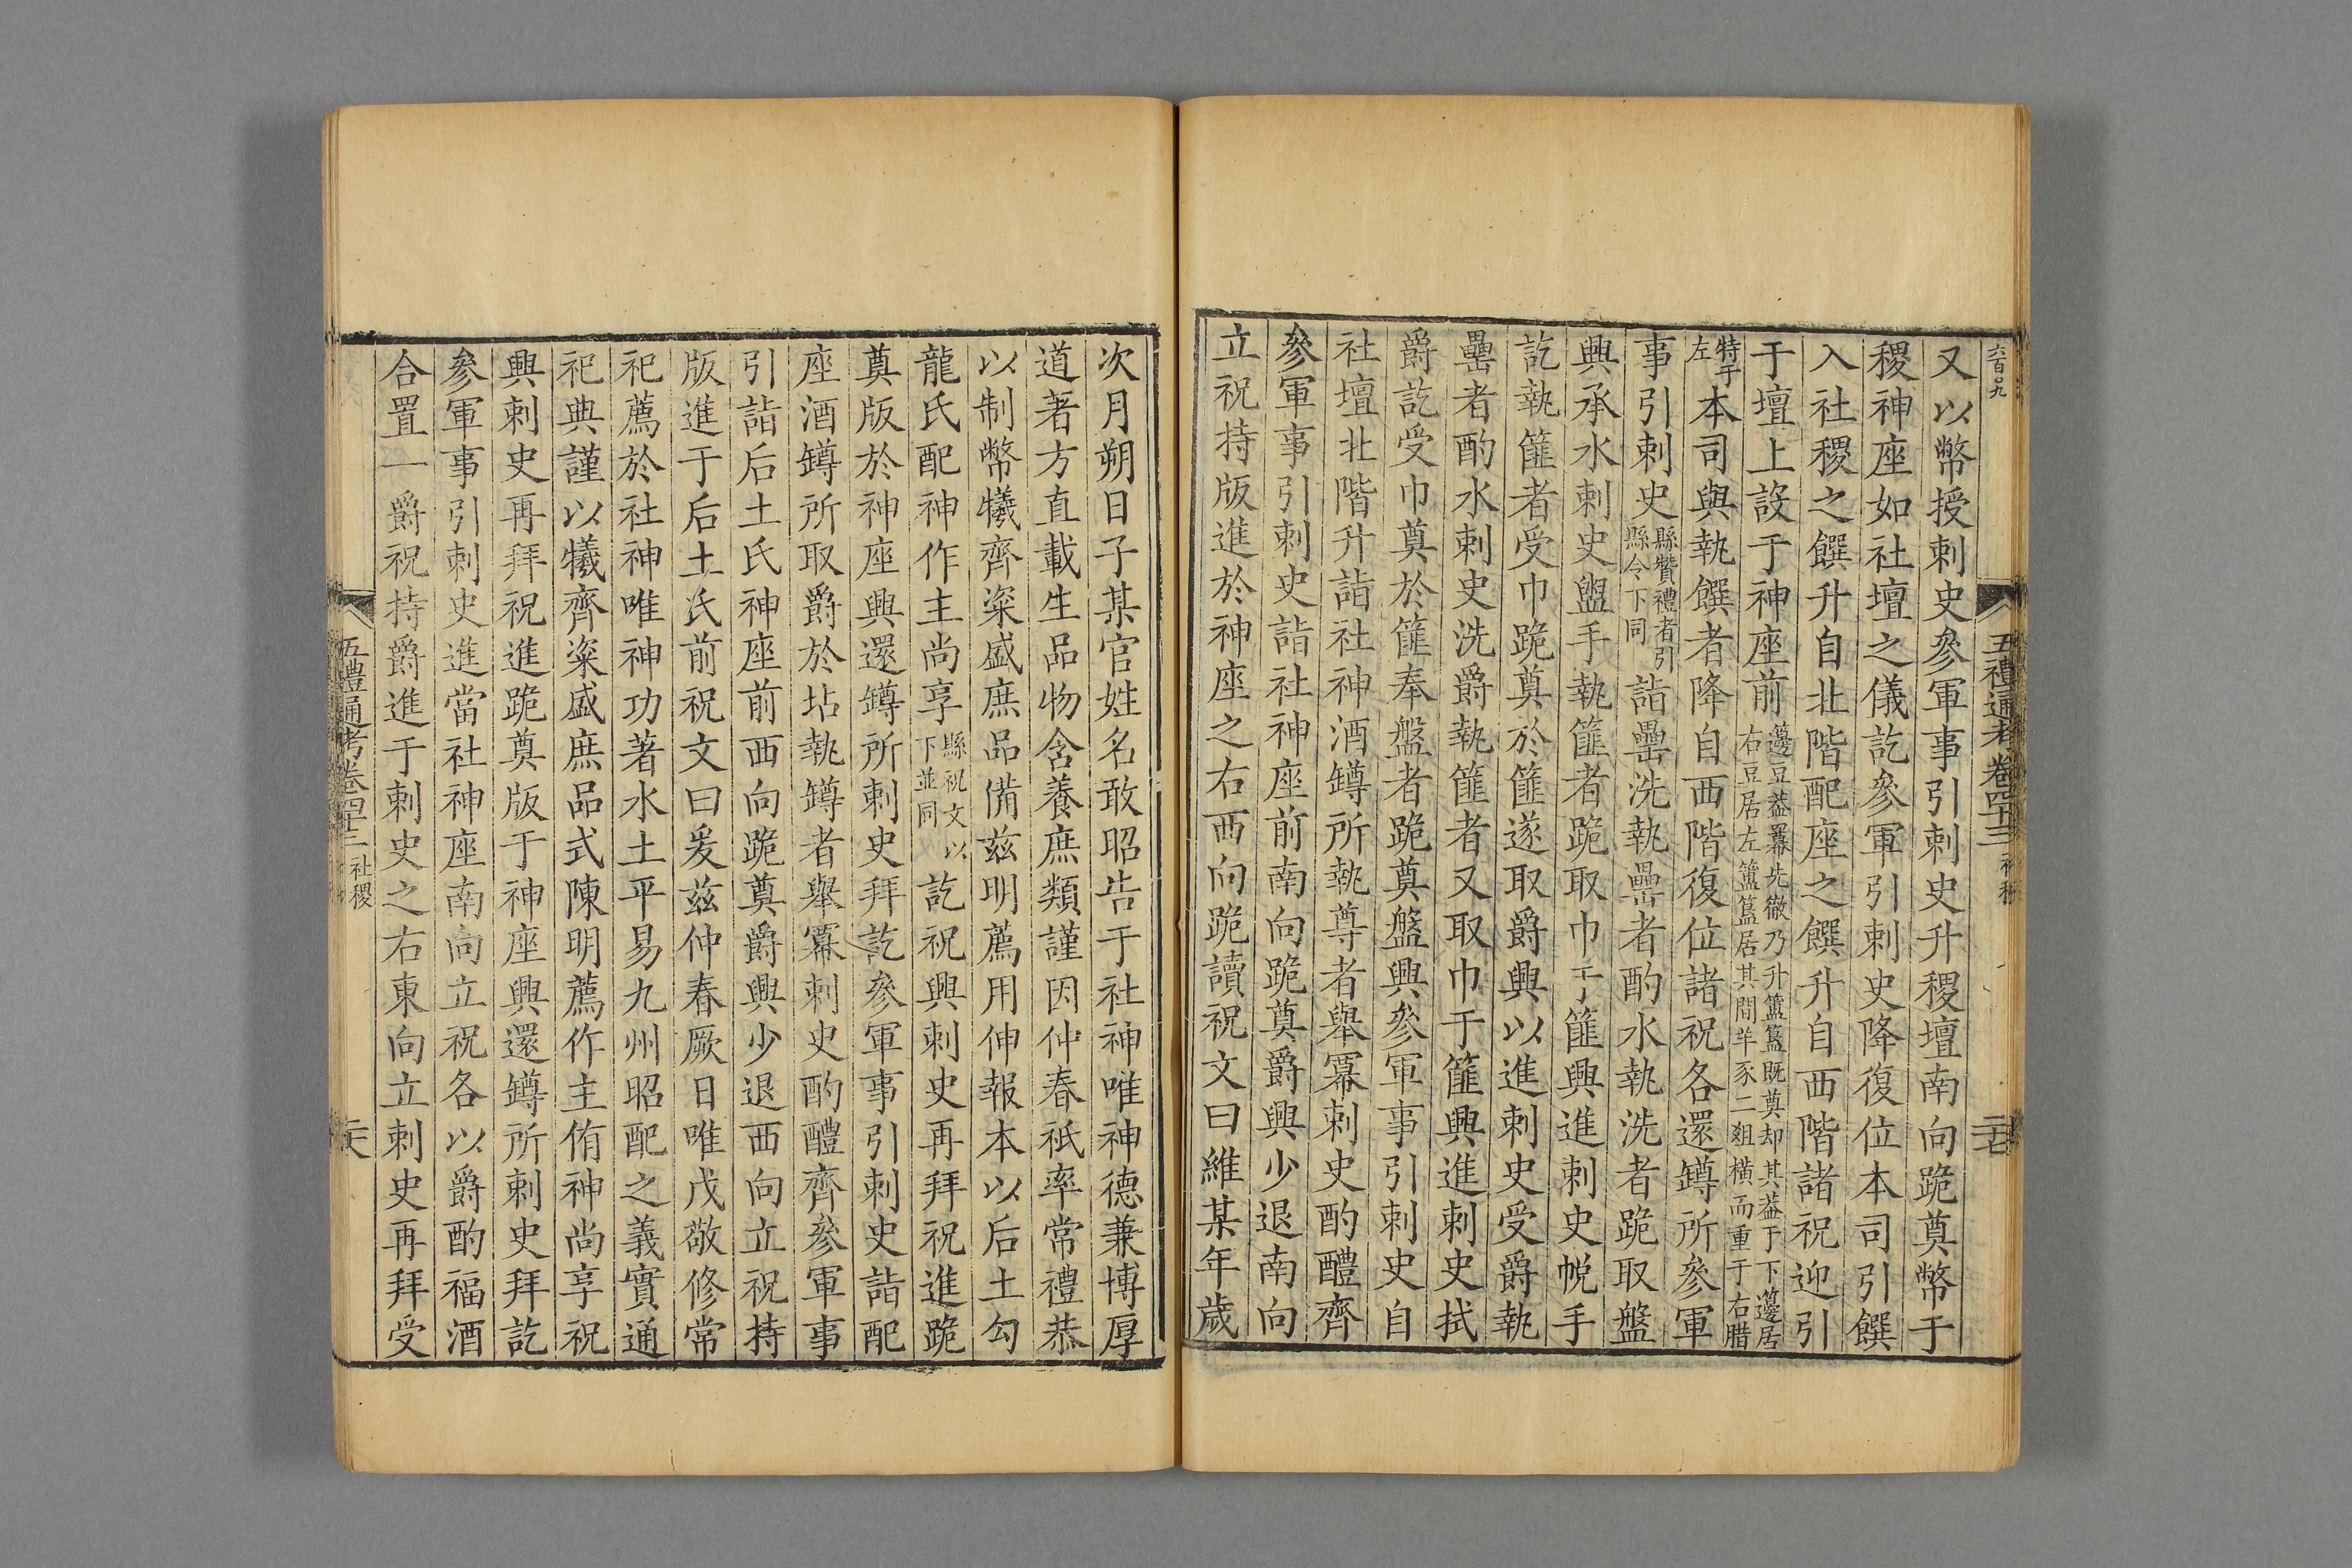 五禮通考卷四十三
又以幣授刺史參軍事引刺史升稷壇南向跪奠幣于
稷神座如社壇之儀訖參軍引刺史降復位本司引饌
入社稷之饌升自北階配座之饌升自西階諸祝迎引
于壇上設于神座前籩豆葢冪先徹乃升簠簋既奠却其葢于下籩居右豆居左簠簋居其間羊豕二爼橫而重于右腊
特于左本司與執饌者降自西階復位諸祝各還罇所參軍
事引刺史縣贊禮者引縣令下同詣罍洗執罍者酌水執洗者跪取盤
興承水刺史盥手執篚者跪取巾于篚興進刺史帨手
訖執篚者受巾跪奠於篚遂取爵興以進刺史受爵執
罍者酌水刺史洗爵執篚者又取巾于篚興進刺史拭
爵訖受巾奠於篚奉盤者跪奠盤興參軍事引刺史自
社壇北階升詣社神酒罇所執尊者舉冪刺史酌醴齊
參軍事引刺史詣社神座前南向跪奠爵興少退南向
立祝持版進於神座之右西向跪讀祝文曰維某年歲
次月朔日子某官姓名敢昭告于社神唯神德兼博厚
道著方直載生品物含養庶類謹因仲春祇率常禮恭
以制幣犧齊粢盛庶品備兹明薦用伸報本以后土勾
龍氏配神作主尚享縣祝文以下並同訖祝興刺史再拜祝進跪
奠版於神座興還罇所刺史拜訖參軍事引刺史詣配
座酒罇所取爵於坫執罇者舉冪刺史酌醴齊參軍事
引詣后土氏神座前西向跪奠爵興少退西向立祝持
版進于后土氏前祝文曰爰兹仲春厥日唯戊敬修常
祀薦於社神唯神功著水土平易九州昭配之義實通
祀典謹以犧齊粢盛庶品式陳明薦作主侑神尚享祝
興刺史再拜祝進跪奠版于神座興還罇所刺史拜訖
參軍事引刺史進當社神座南向立祝各以爵酌福酒
合置一爵祝持爵進于刺史之右東向立刺史再拜受
五禮通考卷四十三 社稷